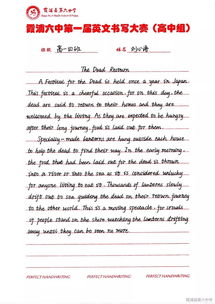 霞浦县第六中学
霞浦六中第一届英文书写大赛（高中组）
班级 高一四班 姓名
The Dead Return
A Festival for the Dead is held once a year in Japan.
This festival is a cheerful occasion, for on this day, the
dead are said to return to their homes and they are
welcomed by the living. As they are expected to be hungry
after their long journey, food is laid out for them.
Specially-made lanterns are hung outside each house
to help the dead to find their way. In the early morning,
the food that had been laid out for the dead is thrown
into a river or into the sea as it is considered unlucky
for anyone living to eat it. Thousands of lanterns slowly
drift out to sea guiding the dead on their return journey
to the other world. This is a moving spectacle, for crowds
of people stand on the shore watching the lanterns drifting
away until they can be seen no more.
PERFECT HANDWRITING PERFECT HANDWRITING PERFECT HANDWRITING